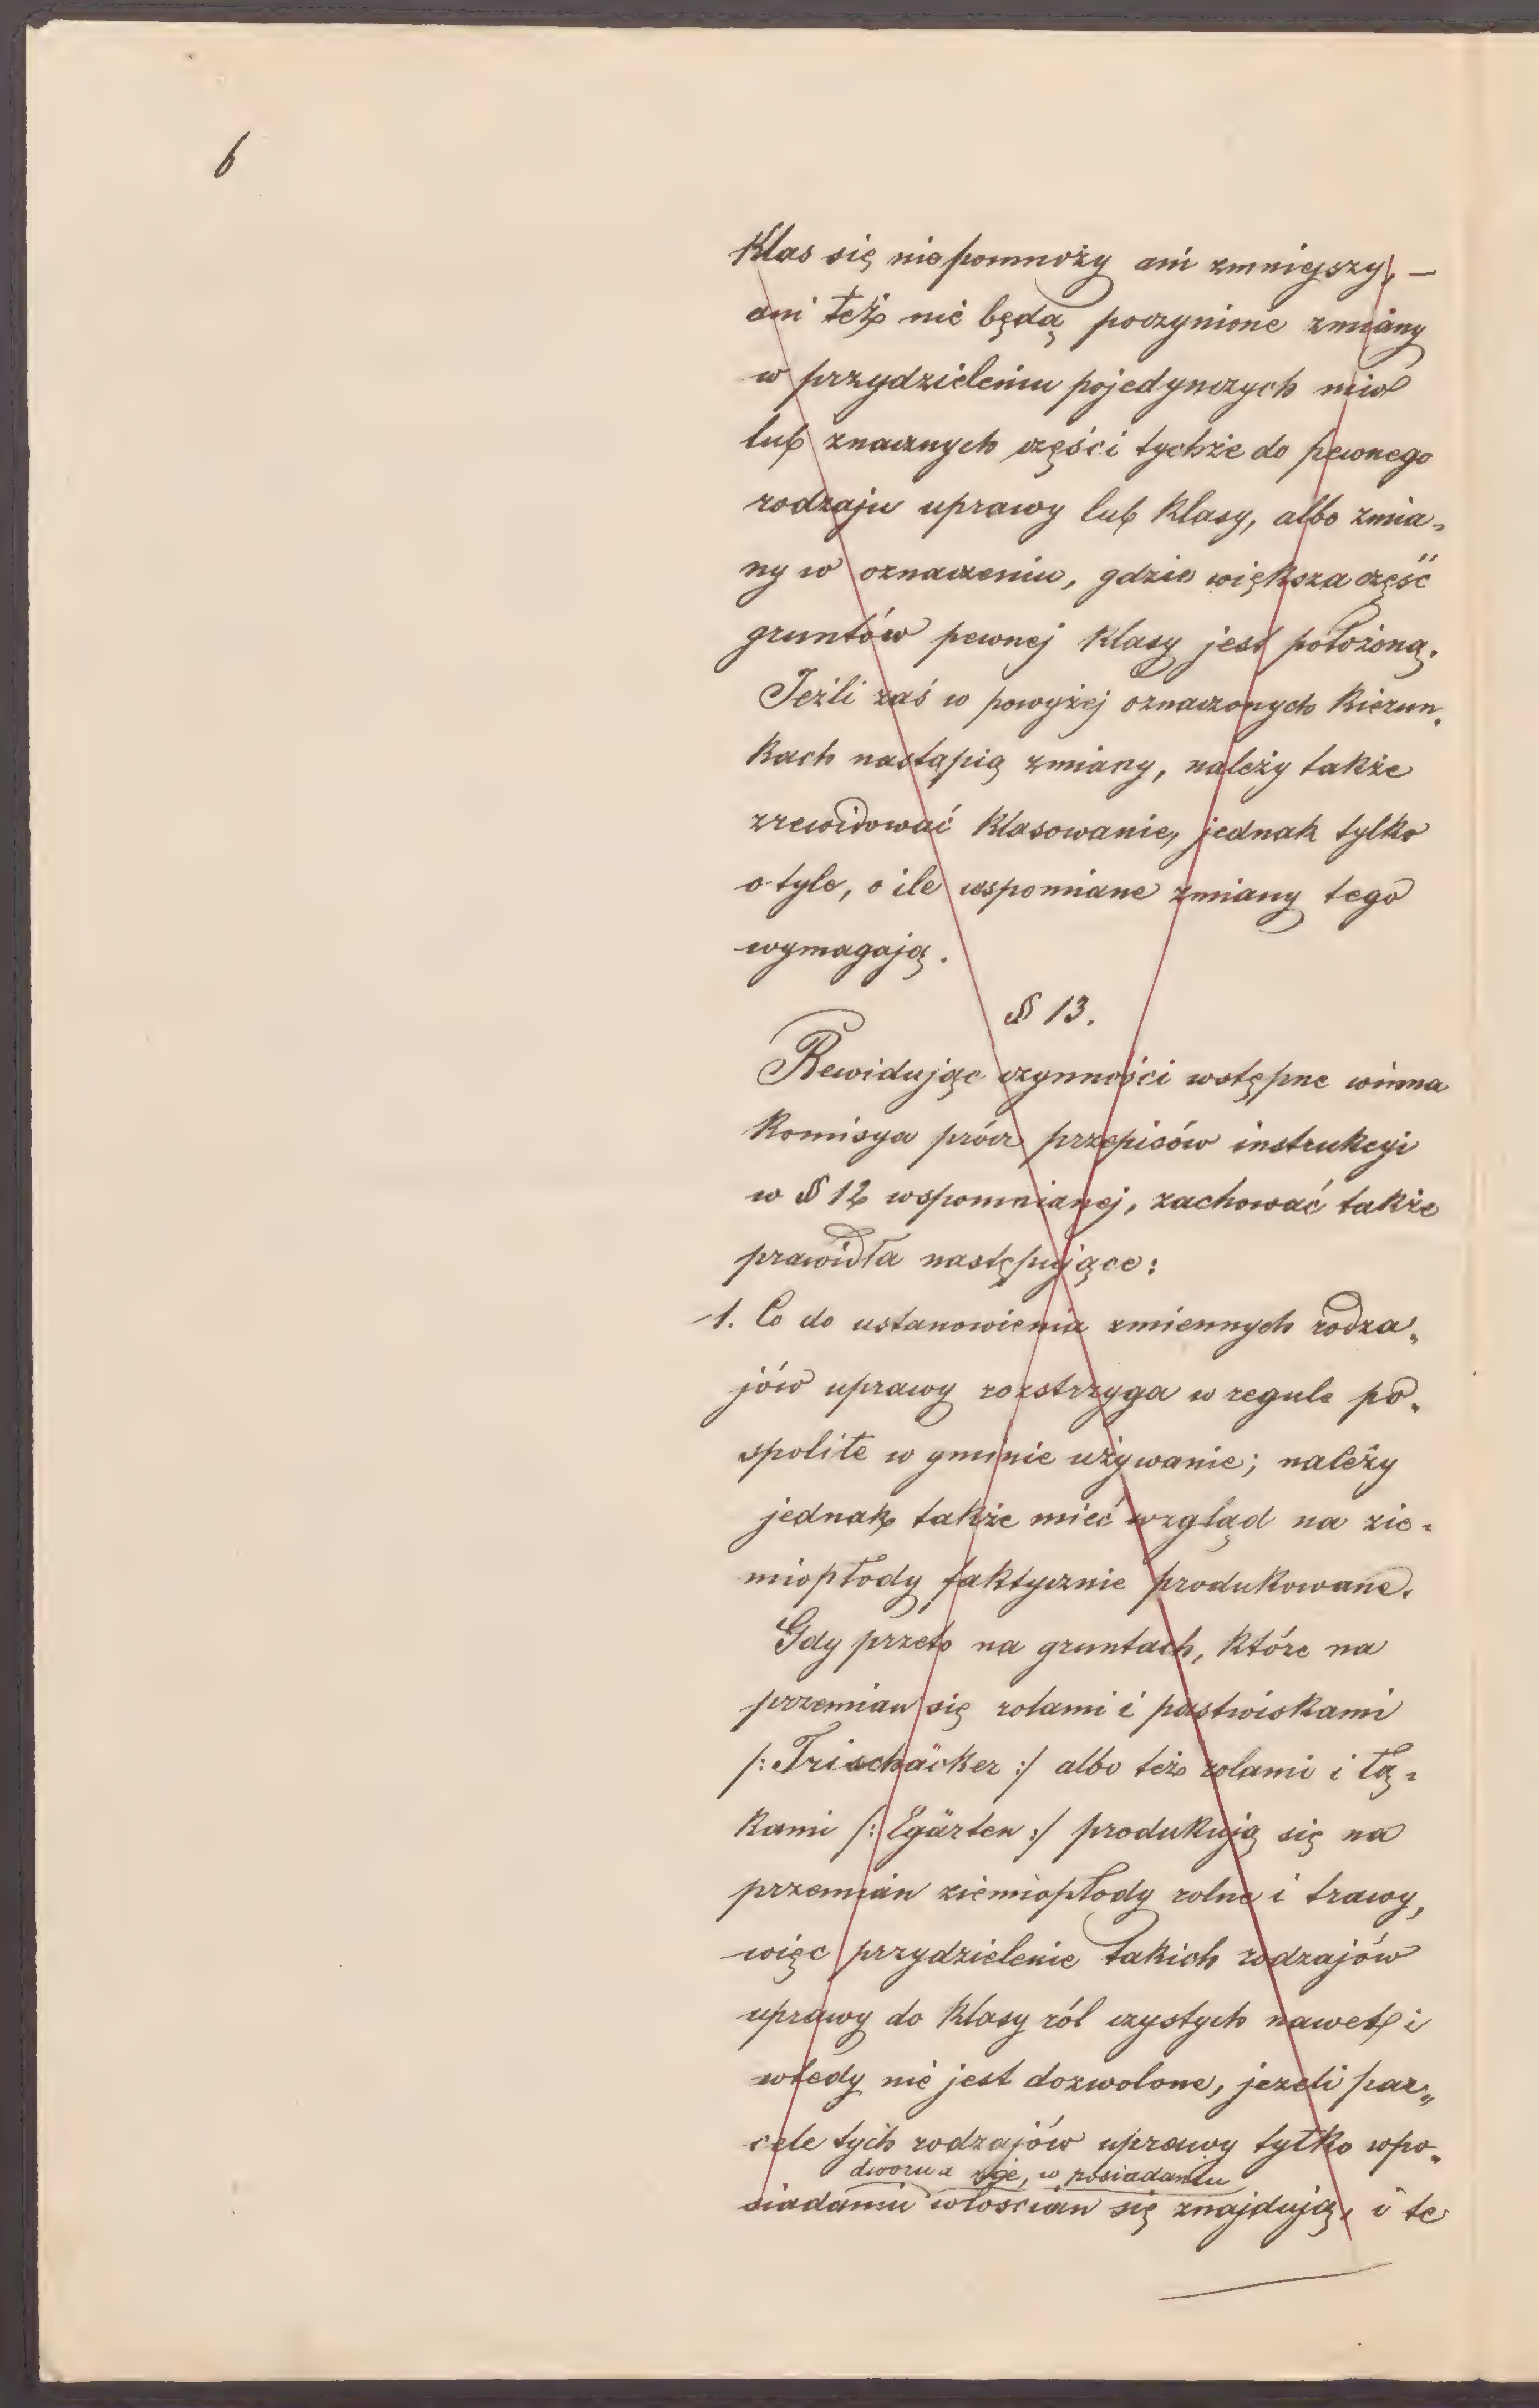 6
Klas się nie pomnoży ani zmniejszy, —
ani też nie będą poczynione zmiany
w przydzieleniu pojedynczych niw
lub znacznych części tychże do pewnego
rodzaju uprawy lub Klasy, albo zmia„
ny w oznaczeniu, gdzie większa część
gruntów pewnej Klasy jest położoną.
Jeźli zaś w powyżej oznaczonych Kierun„
Kach nastąpią zmiany, należy także
zrewidować Klasowanie, jednak tylko
o tyle, o ile wspomniane zmiany tego
wymagają.
§ 13.
Rewidując czynności wstępne winna
Komisya prócz przepisów instrukcyi
w § 12 wspomnianej, zachować także
prawidła następujące:
1. Co do ustanowienia zmiennych rodza„
jów uprawy rozstrzyga w regule po„
spolite w gminie używanie; należy
jednak także mieć wzgląd na zie„
miopłody faktycznie produkowane.
Gdy przeto na gruntach, które na
przemian się rolami i pastwiskami
/: Trischäcker :/ albo też rolami i łą„
Kami /: Egärten :/ produkują się na
przemian ziemiopłody rolne i trawy,
więc przydzielenie takich rodzajów
uprawy do Klasy ról czystych nawet i
wtedy nie jest dozwolone, jeżeli par„
cele tych rodzajów uprawy tylko w po„
dworu a , w posiadaniu
siadaniu włościan się znajdują, i te